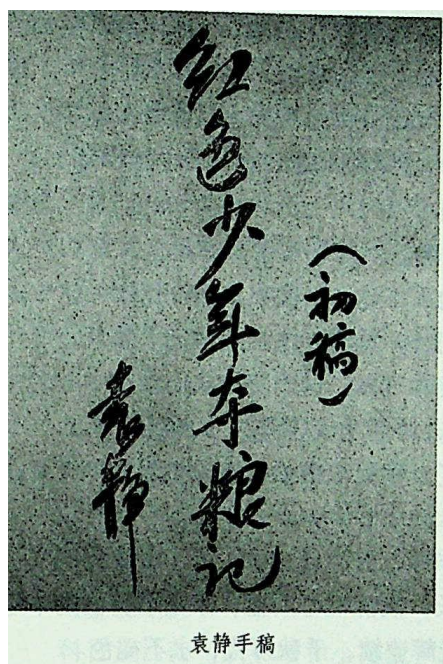 红色少年夺粮记
（初稿）
袁静
袁静手稿